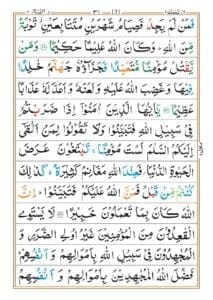 فَمَنْ لَّمْ يَجِدْ فَصِيَامُ شَهْرَيْنِ مُتَتَابِعَيْنِ تَوْبَةً
مِّنَ اللّٰهِ ؕ وَكَانَ اللّٰهُ عَلِيْمًا حَكِيْمًا ۝ وَمَنْ
يَّقْتُلْ مُؤْمِنًا مُّتَعَمِّدًا فَجَزَآؤُهٗ جَهَنَّمُ خٰلِدًا
فِيْهَا وَغَضِبَ اللّٰهُ عَلَيْهِ وَلَعَنَهٗ وَاَعَدَّ لَهٗ عَذَابًا
عَظِيْمًا ۝ يٰٓاَيُّهَا الَّذِيْنَ اٰمَنُوْٓا اِذَا ضَرَبْتُمْ
فِيْ سَبِيْلِ اللّٰهِ فَتَبَيَّنُوْا وَلَا تَقُوْلُوْا لِمَنْ اَلْقٰٓى
اِلَيْكُمُ السَّلٰمَ لَسْتَ مُؤْمِنًا ۚ تَبْتَغُوْنَ عَرَضَ
الْحَيٰوةِ الدُّنْيَا ؗ فَعِنْدَ اللّٰهِ مَغَانِمُ كَثِيْرَةٌ ؕ كَذٰلِكَ
كُنْتُمْ مِّنْ قَبْلُ فَمَنَّ اللّٰهُ عَلَيْكُمْ فَتَبَيَّنُوْا ؕ اِنَّ
اللّٰهَ كَانَ بِمَا تَعْمَلُوْنَ خَبِيْرًا ۝ لَا يَسْتَوِى
الْقٰعِدُوْنَ مِنَ الْمُؤْمِنِيْنَ غَيْرُ اُولِى الضَّرَرِ وَ
الْمُجٰهِدُوْنَ فِيْ سَبِيْلِ اللّٰهِ بِاَمْوَالِهِمْ وَ اَنْفُسِهِمْ ؕ
فَضَّلَ اللّٰهُ الْمُجٰهِدِيْنَ بِاَمْوَالِهِمْ وَ اَنْفُسِهِمْ